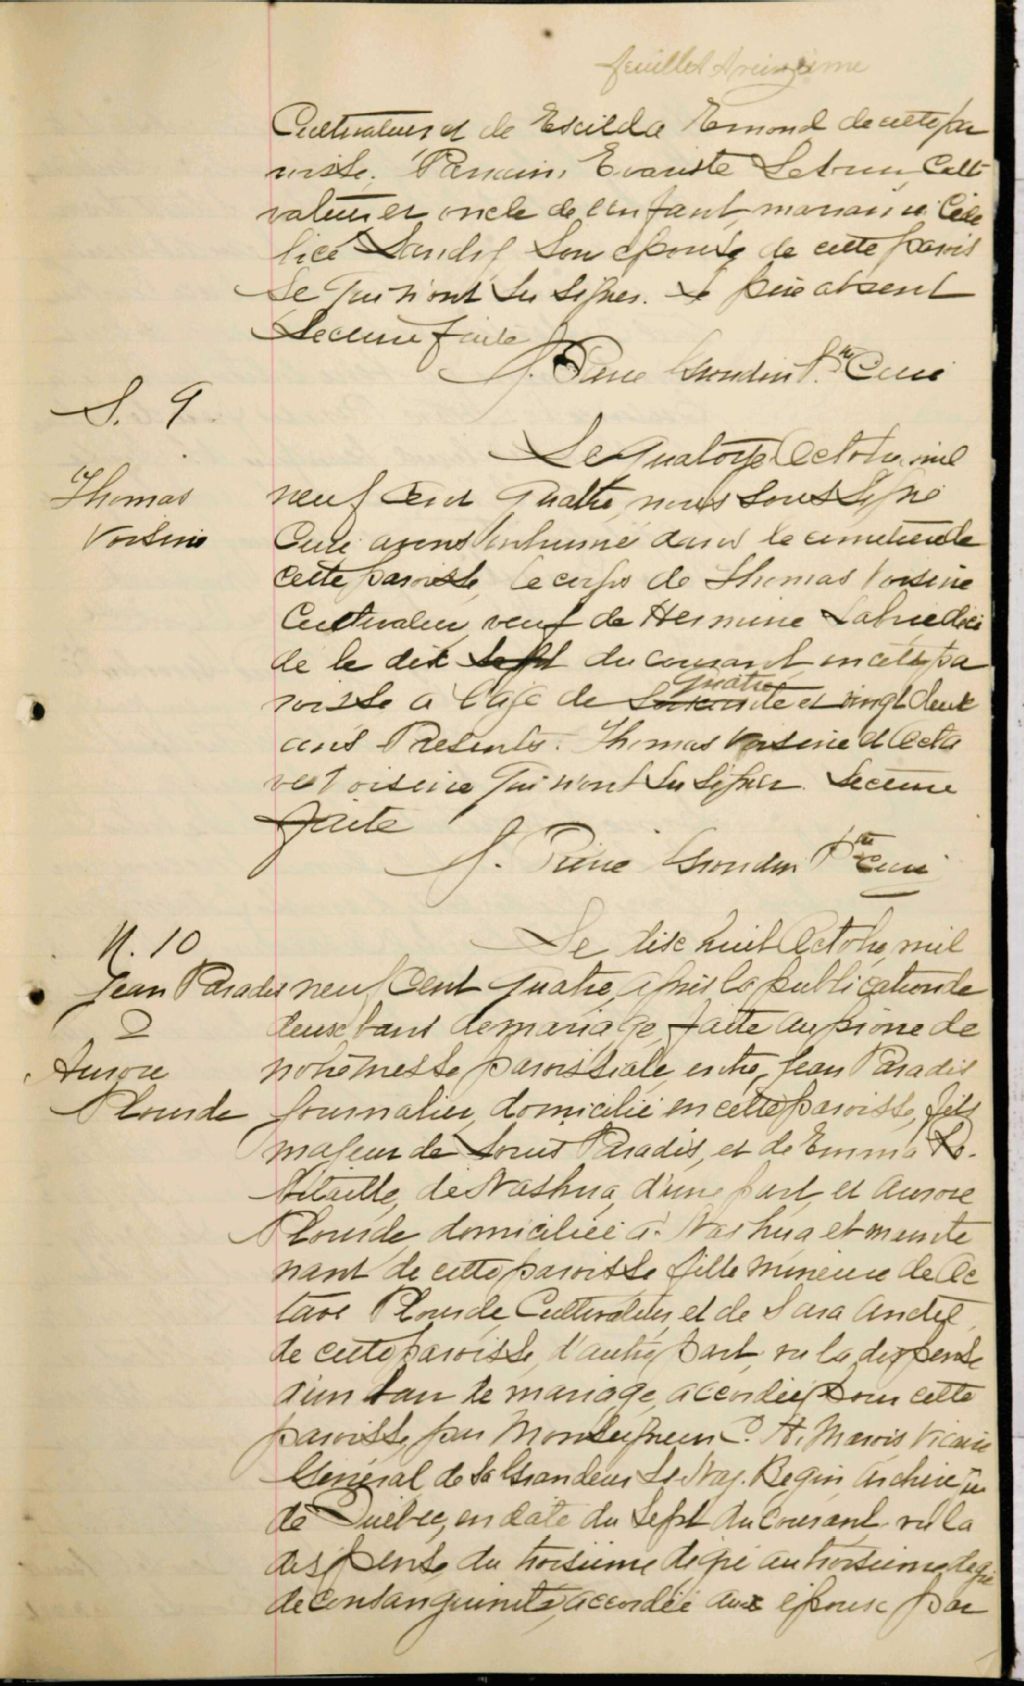 feuillet treizième
Cultivateur et de Exilda Emond de cette pa
roisse. Parrain, Evariste Lebrun, Culti
vateur et oncle de l'enfant, marraine Cide
lice Landry son épouse de cette parois
se qui n'ont su signer. Le père absent
Lecture faite
J. Pierre Grondin Ptre Curé
S. 9
Thomas
Voisine
Le quatorze Octobre mil
neuf cent quatre, nous soussigné
Curé avons inhumé dans le cimetière de
cette paroisse, le corps de Thomas Voisine
Cultivateur, veuf de Hermine Labrie décé
dé le dix sept du courant, en cette pa
roisse a l'age de quatre et vingt deux
ans Présents: Thomas Voisine et Octa
ve Voisine qui n'ont su signer. Lecture
faite
J. Pierre Grondin Ptre Curé
M. 10
Jean Paradis
&
Aurore
Plourde
Le dix huit Octobre, mil
neuf cent quatre, après la publication de
deux bans de mariage, faite au prône de
notre messe paroissiale, entre, Jean Paradis
journalier, domicilié en cette paroisse, fils
majeur de Louis Paradis, et de Emma Ro-
bitaille, de Nashua, d'une part, et Aurore
Plourde, domiciliée à Nashua et mainte
nant de cette paroisse fille mineure de Oc
tave Plourde, Cultivateur et de Sara Andet,
de cette paroisse, d'autre part, vu la dispense
d'un ban de mariage, accordée pour cette
paroisse, par Monseigneur C. A. Marois Vicaire
Général de Sa Grandeur L. Naz. Bégin, archevêque
de Québec, en date du sept du courant, vu la
dispense du troisième degré au troisième degré
de consanguinité, accordée aux époux par